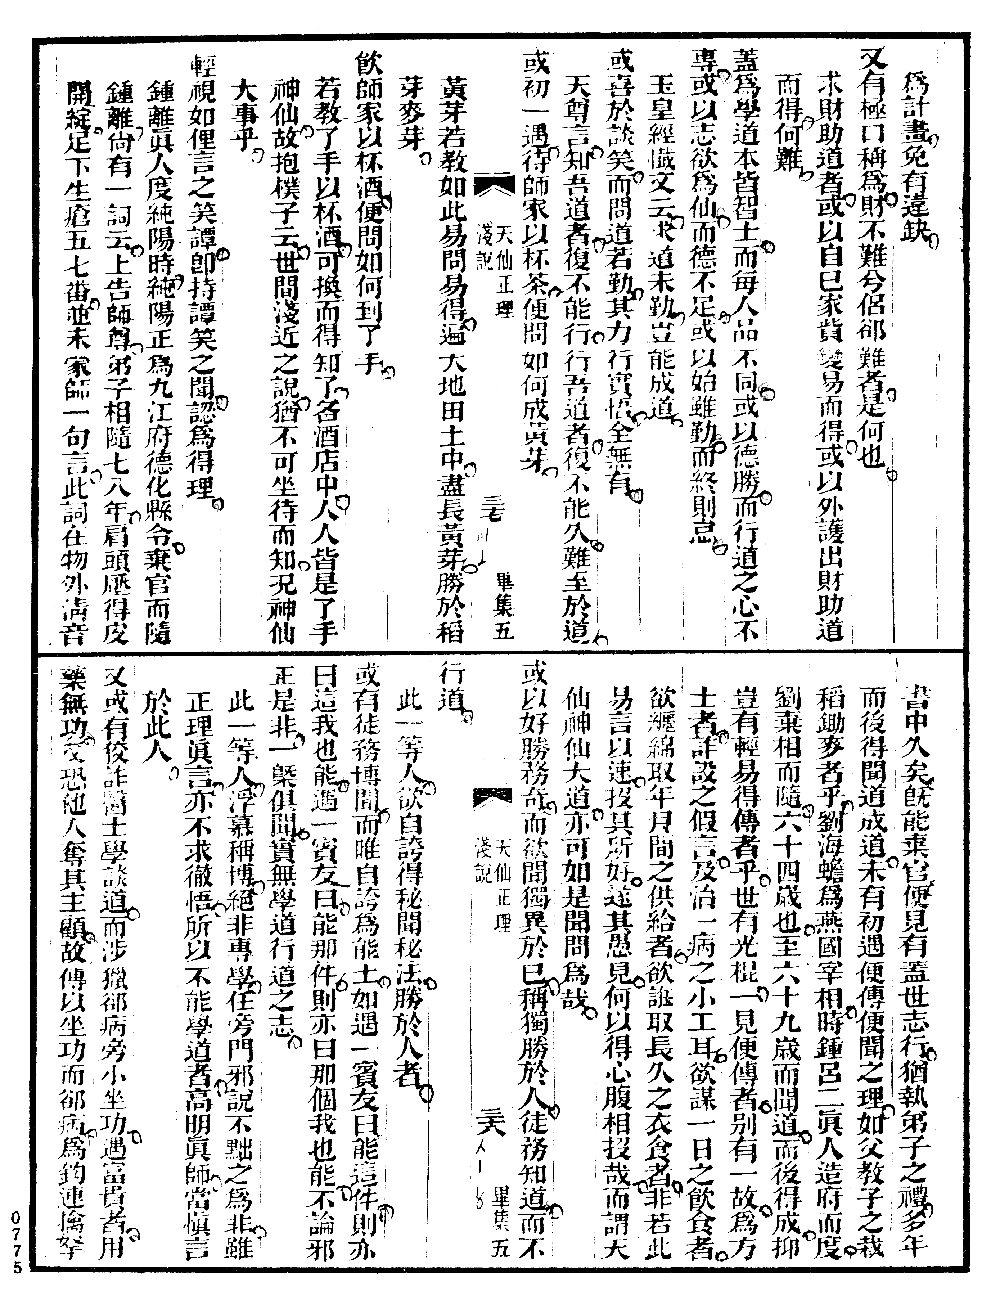 爲計畫免有違缺
又有極口稱爲財不難兮侶郤難者是何也
求財助道者或以自巳家貲變易而得或以外護出財助道
而得何難
蓋爲學道本皆智士而每人品不同或以德勝而行道之心不
專或以志欲爲仙而德不足或以始雖勤而終則怠
玉皇經懺文云求道未勤豈能成道
或喜於談笑而問道若勤其力行實恁全無有
天尊言知吾道者復不能行行吾道者復不能久難至於道
或初一遇得師家以杯茶便問如何成黃芽
天仙正理
淺說
畢集五
黃芽若教如此易問易得遍大地田土中盡長黃芽勝於稻
芽麥芽
飲師家以杯酒便問如何到了手
若教了手以杯酒可換而得知了各酒店中人人皆是了手
神仙故抱樸子云世間淺近之說猶不可坐待而知况神仙
大事乎
輕視如俚言之笑譚卽持譚笑之聞認爲得理
鍾離眞人度純陽時純陽正爲九江府德化縣令棄官而隨
鍾離尙有一詞云上告師尊弟子相隨七八年肩頭壓得皮
開綻足下生瘡五七番並未家師一句言此詞在物外淸音
書中久矣旣能棄官便見有蓋世志行猶執弟子之禮多年
而後得聞道成道未有初遇便傳便聞之理如父教子之栽
稻鋤麥者乎劉海蟾爲燕國宰相時鍾呂二眞人造府而度
劉棄相而隨六十四歲也至六十九歲而聞道而後得成抑
豈有輕易得傳者乎世有光棍一見便傳者别有一故爲方
士者詐設之假言及治一病之小工耳欲謀一日之飲食者
欲纏綿取年月間之供給者欲誆取長久之衣食者非若此
易言以速投其所好遂其愚見何以得心腹相投哉而謂天
仙神仙大道亦可如是聞問爲哉
或以好勝務奇而欲聞獨異於巳稱獨勝於人徒務知道而不
天仙正理
淺說
畢集五
行道
此一等人欲自誇得秘聞秘法勝於人者
或有徒務博聞而唯自誇爲能士如遇一賓友曰能這件則亦
曰這我也能遇一賓友曰能那件則亦曰那個我也能不論邪
正是非一槩俱聞實無學道行道之志
此一等人浮慕稱博絕非專學任旁門邪說不黜之爲非雖
正理眞言亦不求徹悟所以不能學道者高明眞師當愼言
於此人
又或有佼詐醫士學談道而涉獵郤病旁小坐功遇富貴者用
藥無功反恐他人奪其主顧故傳以坐功而郤病爲鈎連擒拏
07775